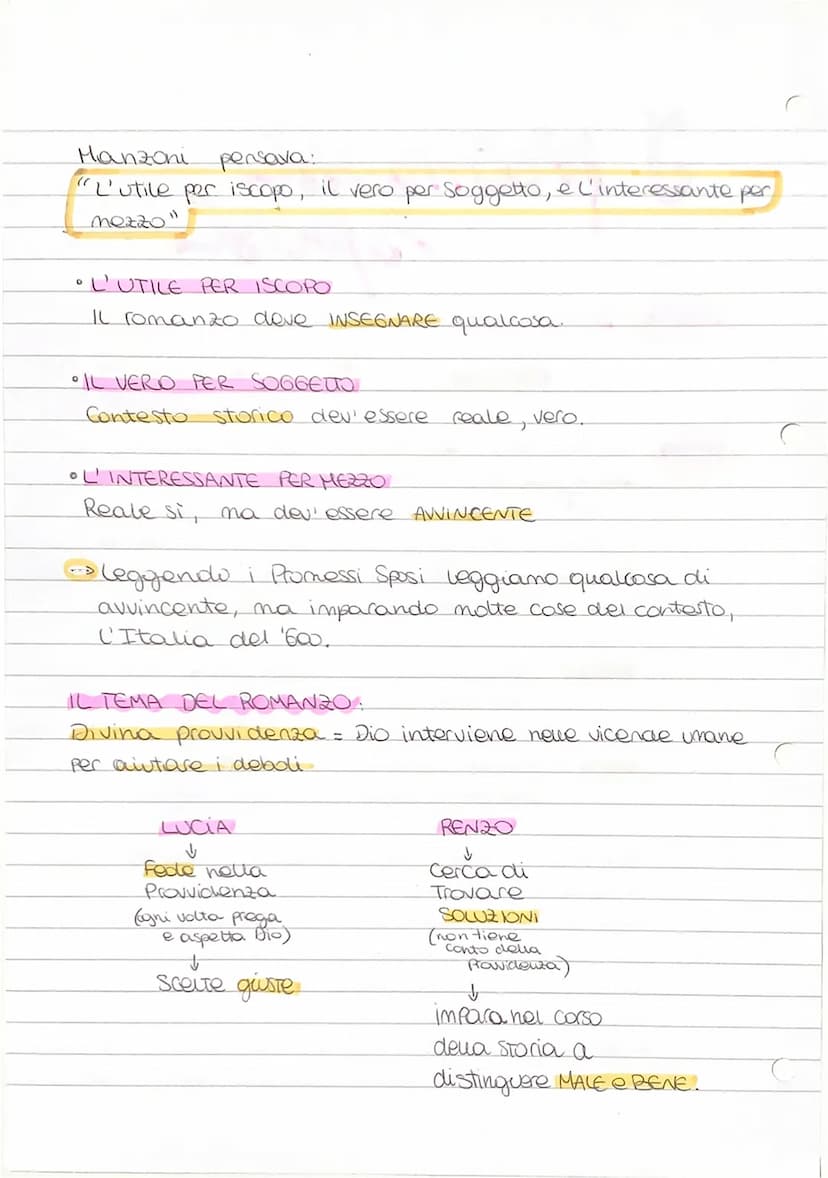 Manzoni pensava:
"L'utile per iscopo, il vero per soggetto, e l'interessante per
mezzo"
• L'UTILE PER ISCOPO
Il romanzo deve INSEGNARE qualcosa.
• IL VERO PER SOGGETTO
Contesto storico dev'essere reale, vero.
• L'INTERESSANTE PER MEZZO
Reale sì, ma dev'essere AVVINCENTE
--> Leggendo i Promessi Sposi leggiamo qualcosa di
avvincente, ma imparando molte cose del contesto,
l'Italia del '600.
IL TEMA DEL ROMANZO:
Divina provvidenza = Dio interviene nelle vicende umane
per aiutare i deboli
LUCIA
↓
Fede nella
Provvidenza
(ogni volta prega
e aspetta Dio)
↓
scelte giuste
RENZO
↓
Cerca di
Trovare
SOLUZIONI
(non tiene
conto della
Provvidenza)
↓
impara nel corso
della storia a
distinguere MALE e BENE.